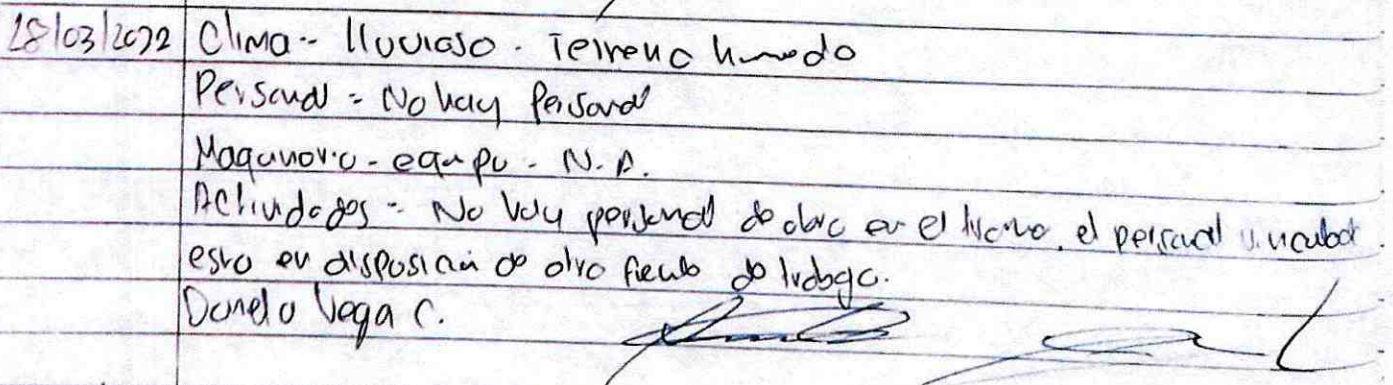 28/03/2022 Clima - lluvioso - Terreno humedo
Personal - No hay personal
Maquinaria - equipo - N.A.
Actividades - No hay personal de obra en el tramo, el personal vinculado
esta en disposicion de otro frente de trabajo.
Danilo Vega C.